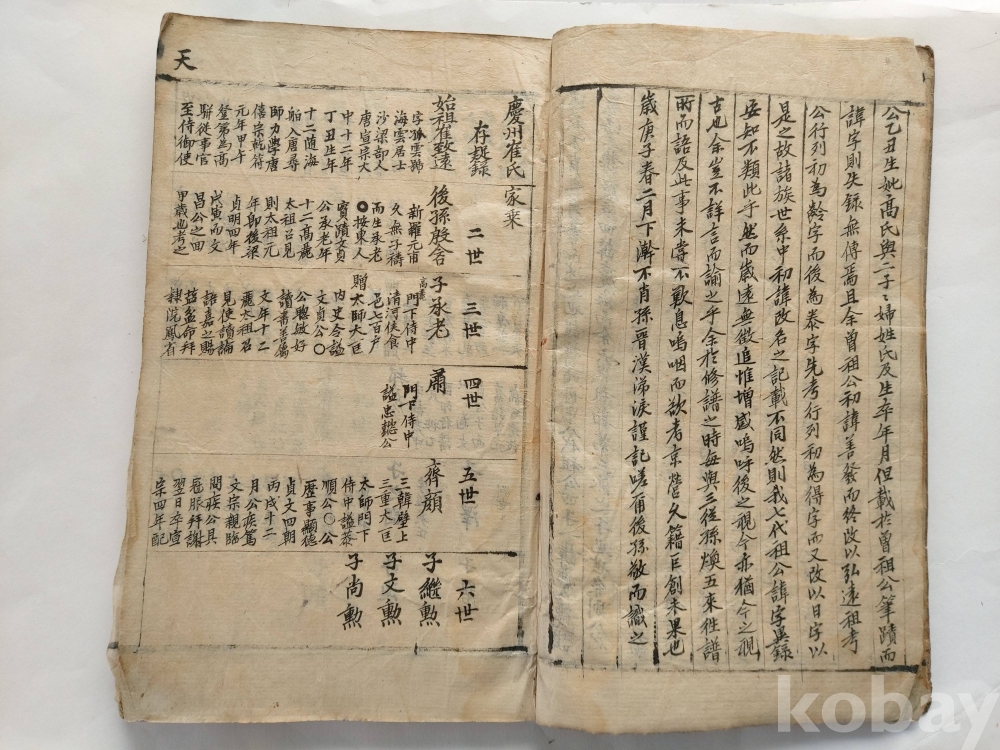 公乙丑生妣高氏與二子二婦姓氏及生卒年月但載於曾租公筆蹟而
諱字則失録無傳焉且余曾租公初諱善發而終改以弘遠租考
公行列初為齡字而後為泰字先考行列初為得字而又改以日字以
是之故諸族世系中初諱改名之記載不同然則我七代租公諱字異錄
安知不類此乎然而歳遠無徵追惟增感嗚呼後之視今亦猶今之視
古也余豈不詳言而論之乎余於修譜之時每與三從孫煥五來往譜
所而語及此事未嘗不歎息嗚咽而欲考京營久籍巨創未果也
歲庚子春二月下澣不肖孫晋漢涕淚謹記嗟爾後孫敬而識之
天
慶州崔氏家乗
存𢾡錄
始祖崔致遠
字孤雲號
海雲居士
沙梁部人
唐宣宗大
中十二年
丁丑生年
十二随海
舶入唐尋
師力學唐
僖宗乾符
元年甲午
登第為高
駢從事官
至侍御使
二世
後孫殷含
新羅元甫
久無子禱
而生承老
○按東人
寳蹟文貞
公承老年
十二高麗
太祖召見
則太祖元
年即後梁
貞明四年
戊寅而文
昌公之回
甲歲也考之
三世
子承老
高麗
門下侍中
清河侯食
邑七百户
贈太師大匡
内史令謚
文貞公○
公聰敏好
讀書善屬
文年十二
麗太祖召
見使讀論
語嘉之賜
塩盆命拜
隸院鳳有
四世
肅
門下侍中
謚忠懿公
五世
齊顔
三韓壁上
三重大匡
太師門下
侍中謚恭
順公○公
歷事顯德
貞文四朝
丙戌十二
月公疾篤
文宗親臨
問疾公具
冠服拜謝
翌日卒宣
宗四年配
六世
子繼勲
子文勲
子尚勲
kobay